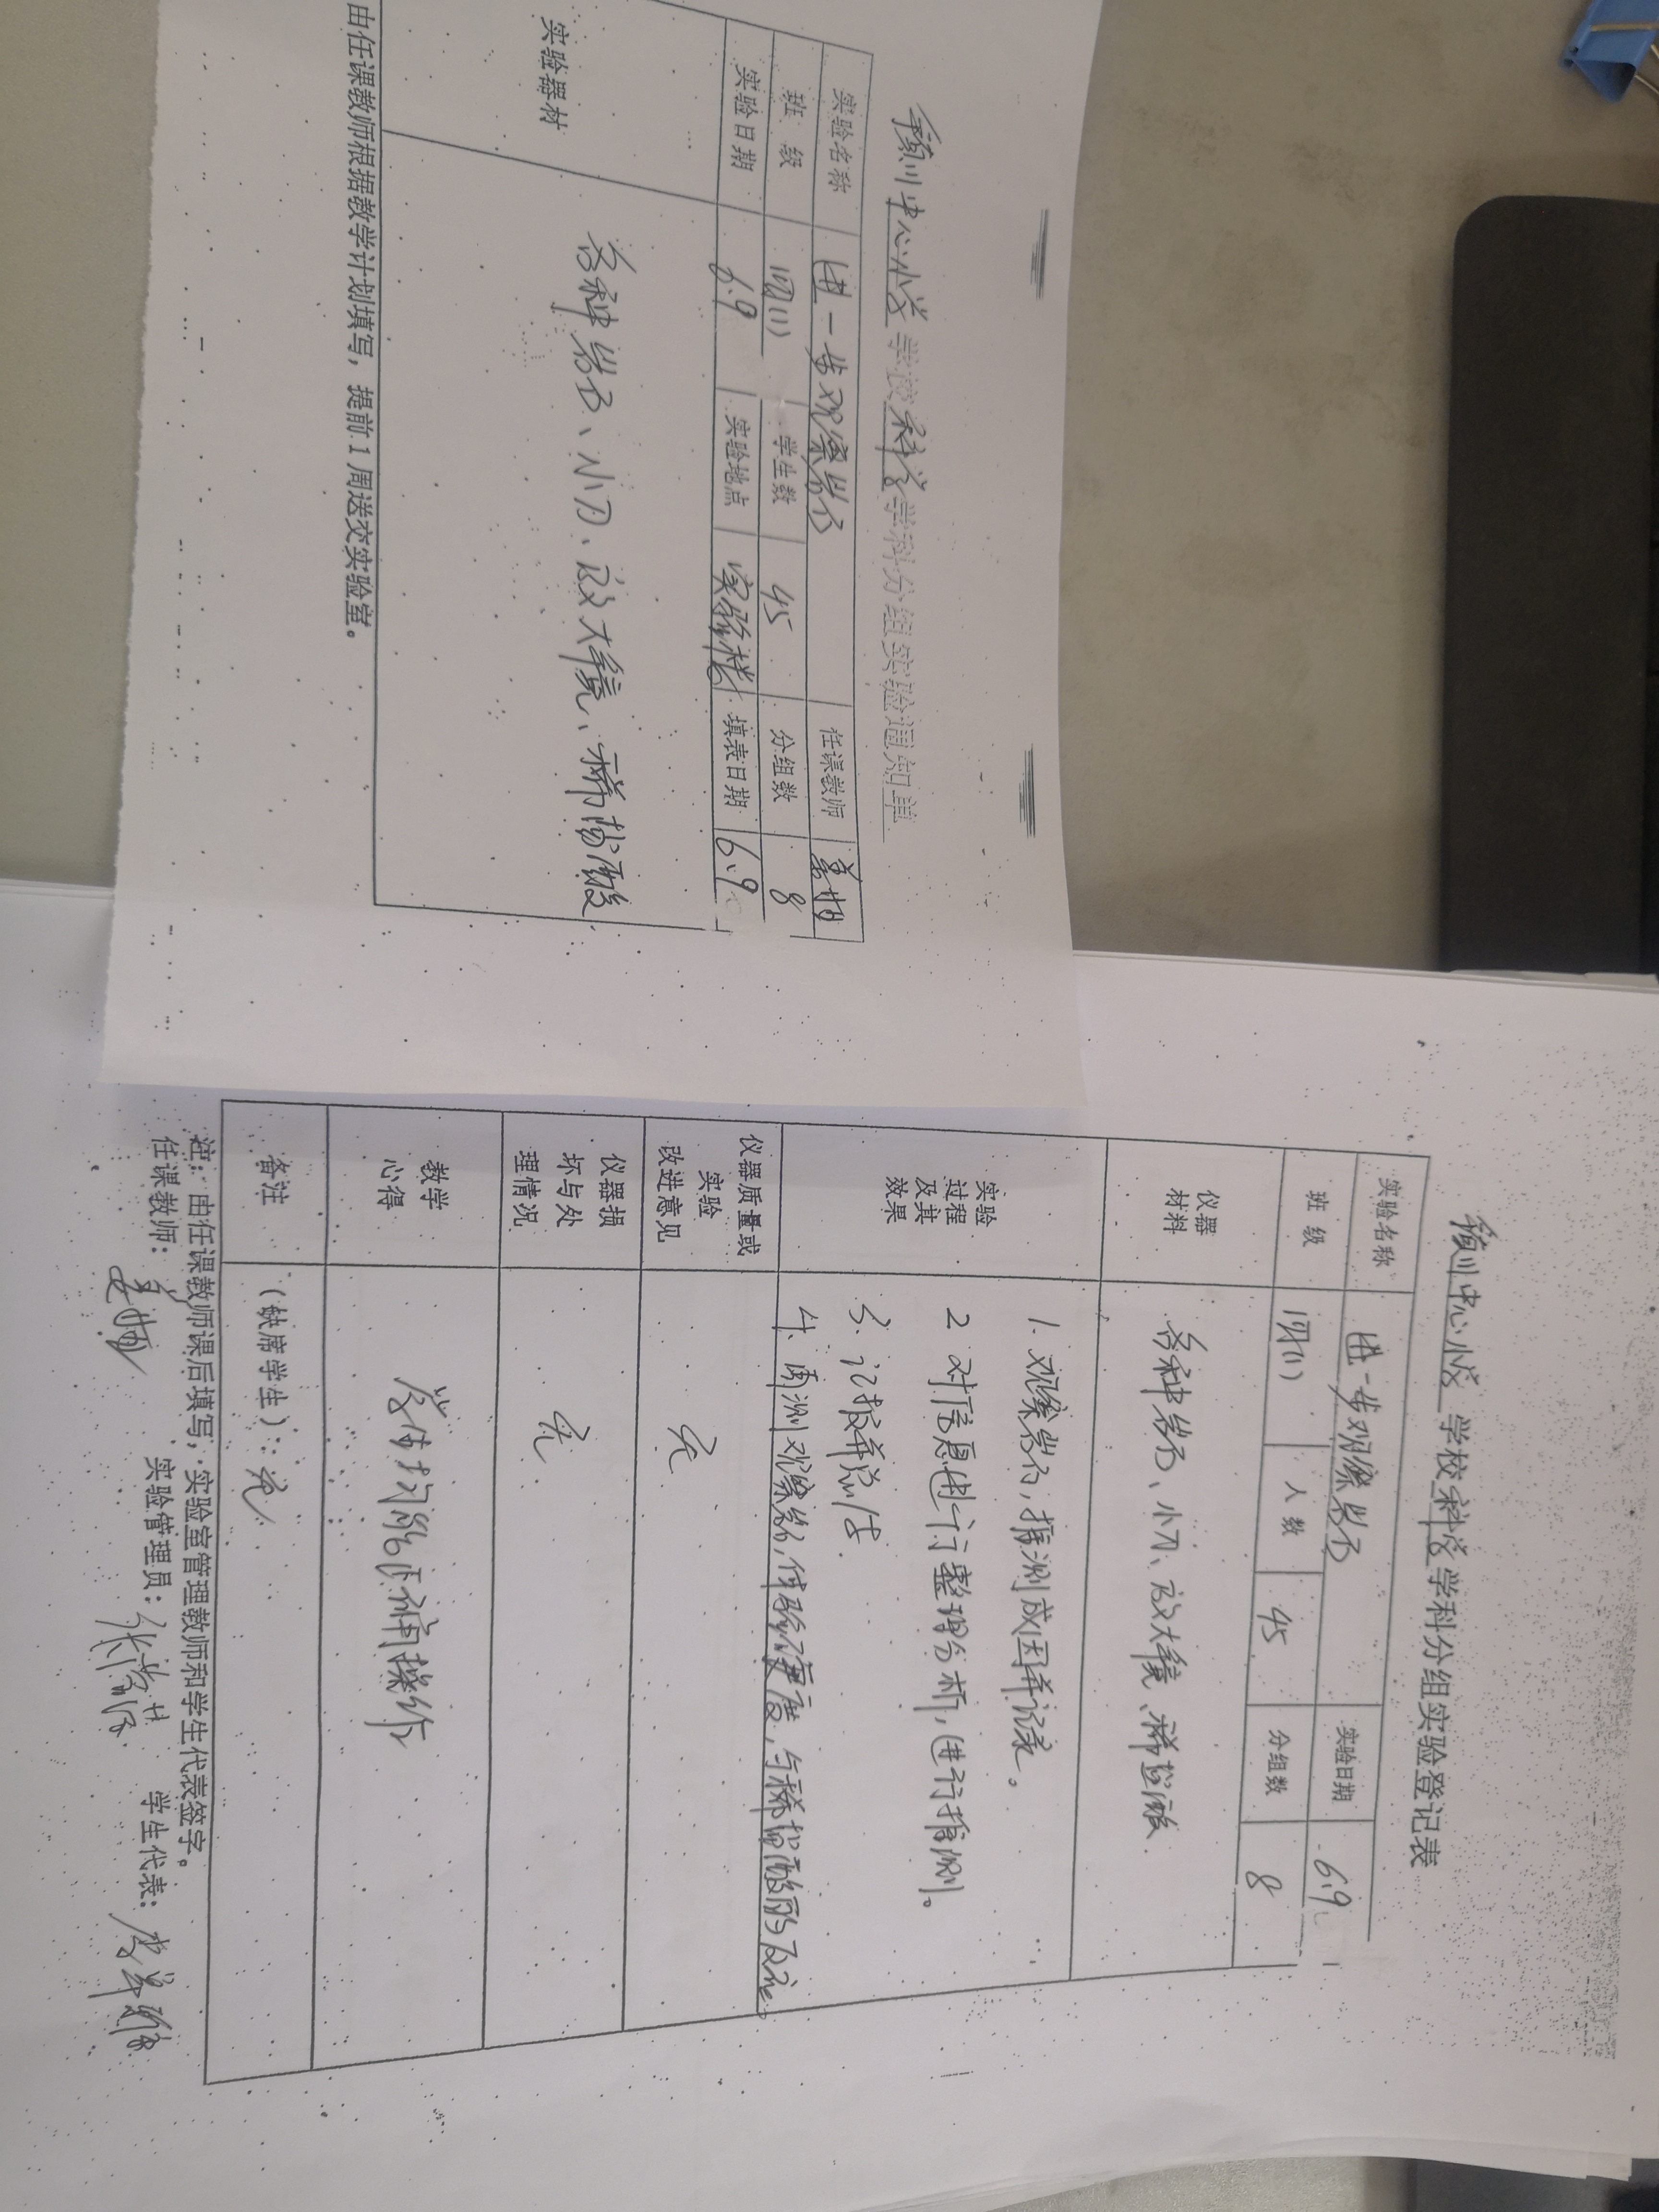 颍川中心小学 学校 科学 学科分组实验通知单
实验名称 进一步观察岩石 任课教师
班 级 四(1) 学生数 45 分组数 8
实验日期 6.9 实验地点 实验楼 填表日期 6.9
实验器材 各种岩石、小刀、放大镜、稀盐酸
由任课教师根据教学计划填写，提前1周送交实验室。
颍川中心小学 学校 科学 学科分组实验登记表
实验名称 进一步观察岩石 实验日期 6.9
班 级 四(1) 人数 45 分组数 8
仪器
材料
各种岩石、小刀、放大镜、稀盐酸
实验
过程
及其
效果
1. 观察岩石，推测成因并记录。
2 对信息进行整理分析，进行推测。
3. 汇报并总结.
4. 再测观察岩石，体验硬度，与稀盐酸的反应
仪器质量或
实验
改进意见
无
仪器损
坏与处
理情况
无
教学
心得
学生均能正确操作
备注
(缺席学生)：无
注：由任课教师课后填写，实验室管理教师和学生代表签字。
任课教师： 实验管理员： 学生代表：